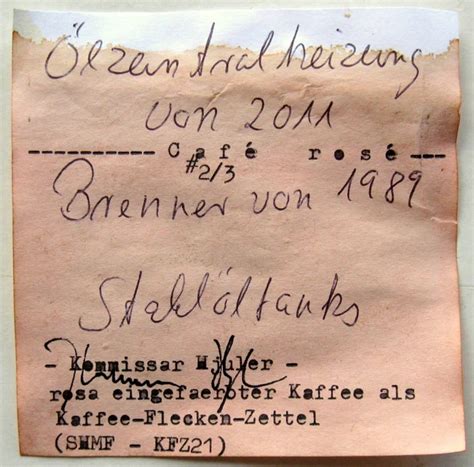 Ölzentralheizung
von 2011
----------- Café rosé---
#2/3
Brenner von 1989
Stahlöltanks
- Kommissar Hjuler -
rosa eingefaerbter Kaffee als
Kaffee-Flecken-Zettel
(SHMF - KFZ21)